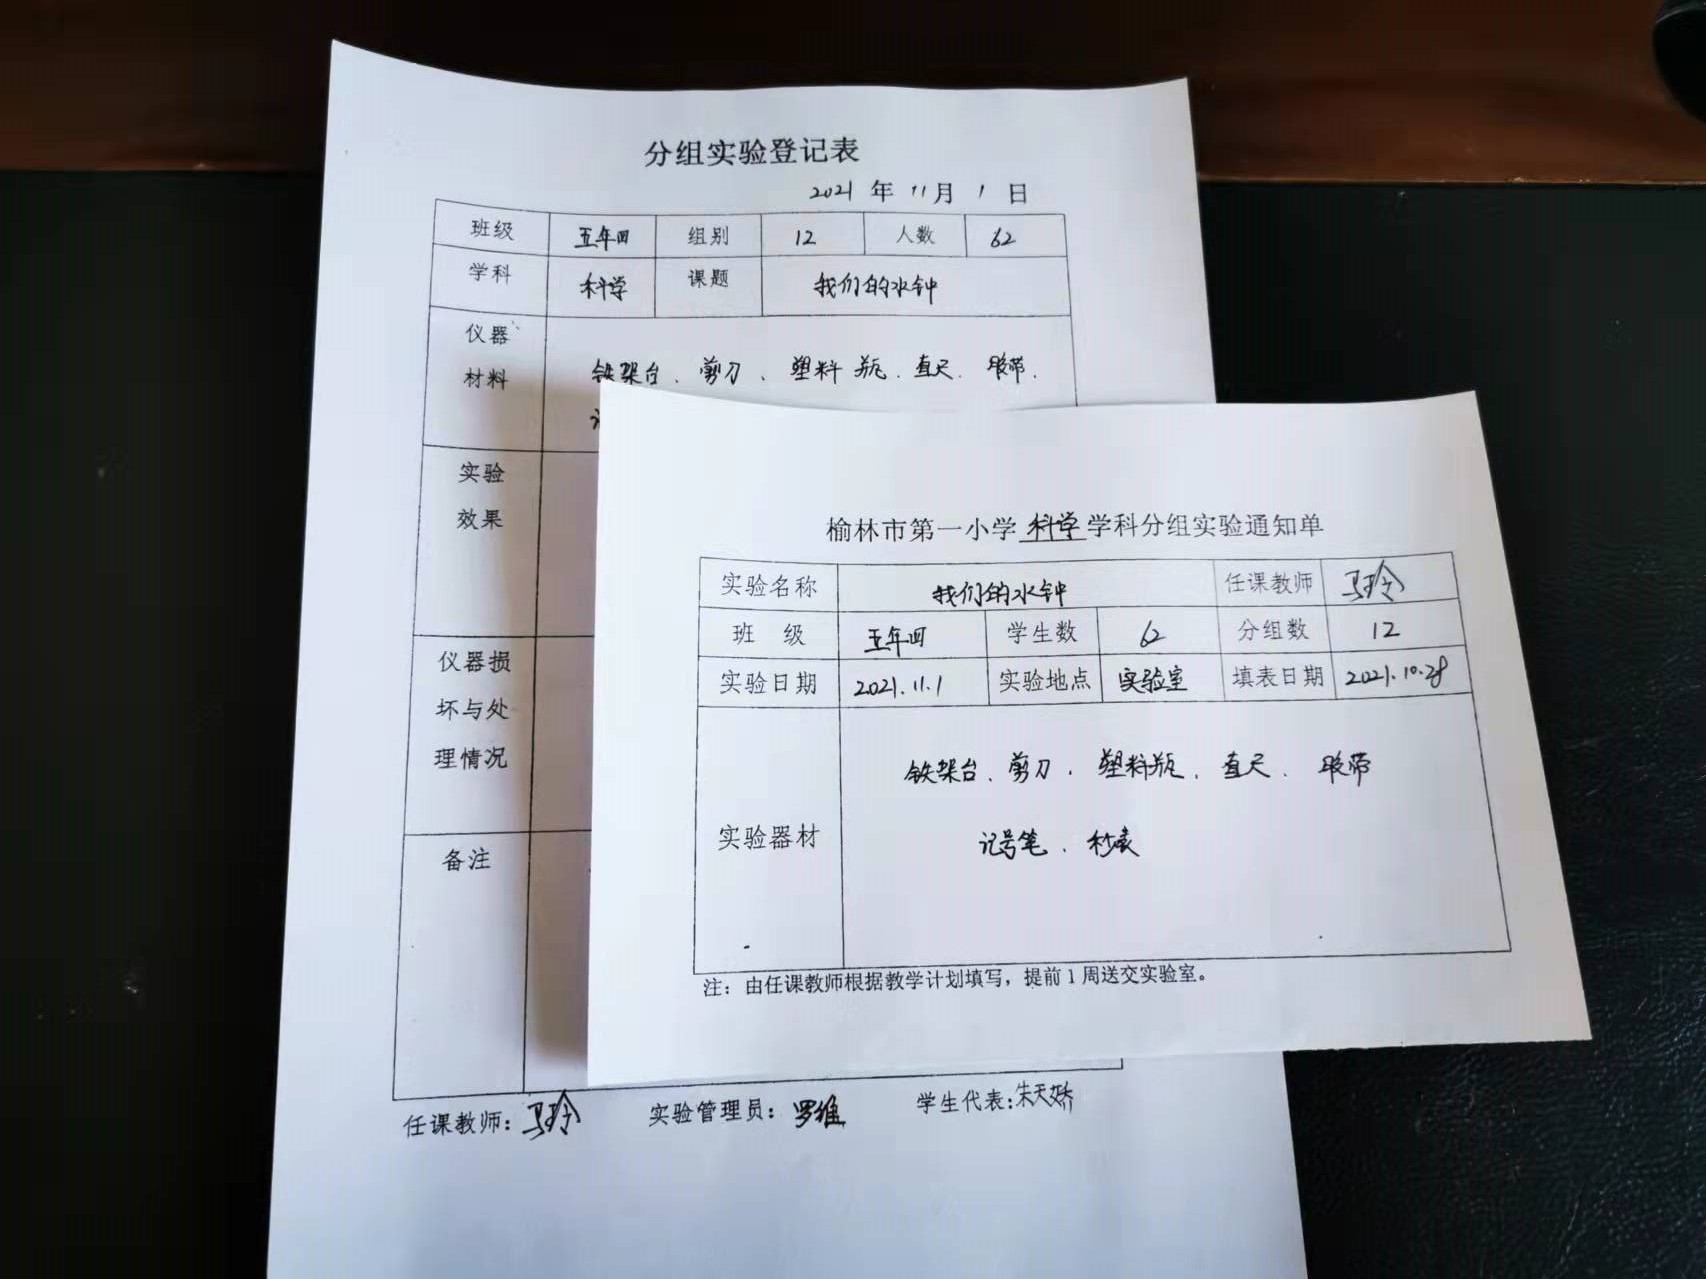 分组实验登记表
2021 年 11月 1 日
班级 五年四 组别 12 人数 62
学科 科学 课题 我们的水钟
仪器
材料
铁架台、剪刀、塑料瓶、直尺、胶带、
实验
效果
仪器损
坏与处
理情况
备注
任课教师：马玲 实验管理员：罗维 学生代表：朱天娇
榆林市第一小学科学学科分组实验通知单
实验名称 我们的水钟 任课教师 马玲
班 级 五年四 学生数 62 分组数 12
实验日期 2021.11.1 实验地点 实验室 填表日期 2021.10.28
实验器材
铁架台、剪刀、塑料瓶、直尺、胶带
记号笔、秒表
注：由任课教师根据教学计划填写，提前1周送交实验室。